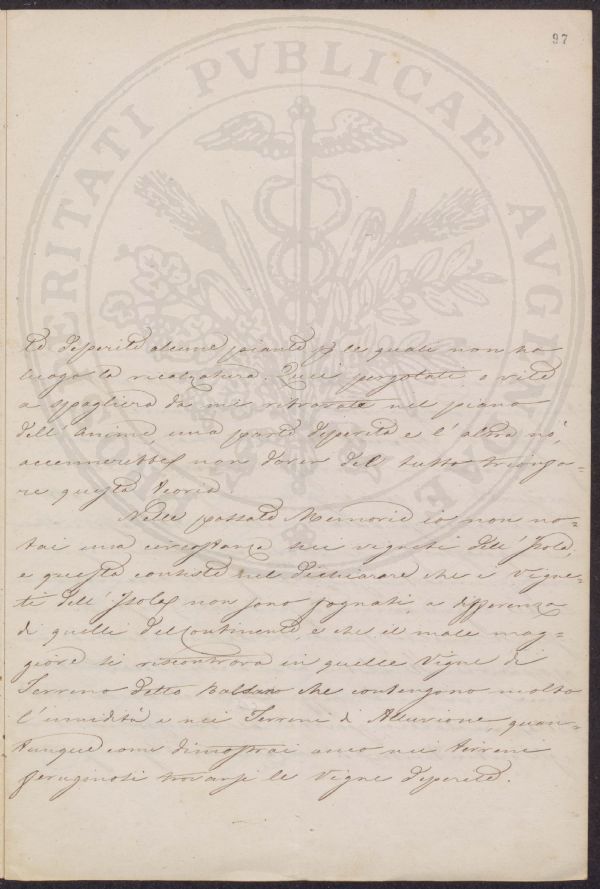 97
VERITATI PVBLICAE AVGENDAE
te deperite alcune piante p le quali non ha
luogo la ricalzatura. Quei pergolati, o vite
a spagliera da me ritrovate nel piano
dell' Anime, una parte deperita e l' altra nò,
accennerebbe non dover del tutto trionfa=
re questa teoria
Nelle passate Memorie io non no=
tai una circostanza sui vigneti dell' Isola,
e questa consiste nel dichiarare che i Vigne=
ti dell' Isola non sono fognati, a differenza
di quelli del Continente, e che il male mag=
giore si riscontrava in quelle Vigne di
Terreno detto che contengono molta
l' umidità e nei Terreni di Alluvione, quan=
tunque come dimostrai anco nei terreni
feruginosi trovansi le Vigne deperite.